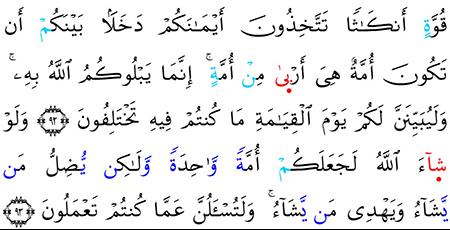 قُوَّةٍ أَنكَـٰثًا تَتَّخِذُونَ أَيْمَـٰنَكُمْ دَخَلًۢا بَيْنَكُمْ أَن
تَكُونَ أُمَّةٌ هِىَ أَرْبَىٰ مِنْ أُمَّةٍ ۚ إِنَّمَا يَبْلُوكُمُ اللَّهُ بِهِۦ ۚ
وَلَيُبَيِّنَنَّ لَكُمْ يَوْمَ الْقِيَـٰمَةِ مَا كُنتُمْ فِيهِ تَخْتَلِفُونَ ﴿٩٢﴾ وَلَوْ
شَآءَ اللَّهُ لَجَعَلَكُمْ أُمَّةً وَٰحِدَةً وَلَـٰكِن يُضِلُّ مَن
يَشَآءُ وَيَهْدِى مَن يَشَآءُ ۚ وَلَتُسْـَٔلُنَّ عَمَّا كُنتُمْ تَعْمَلُونَ ﴿٩٣﴾